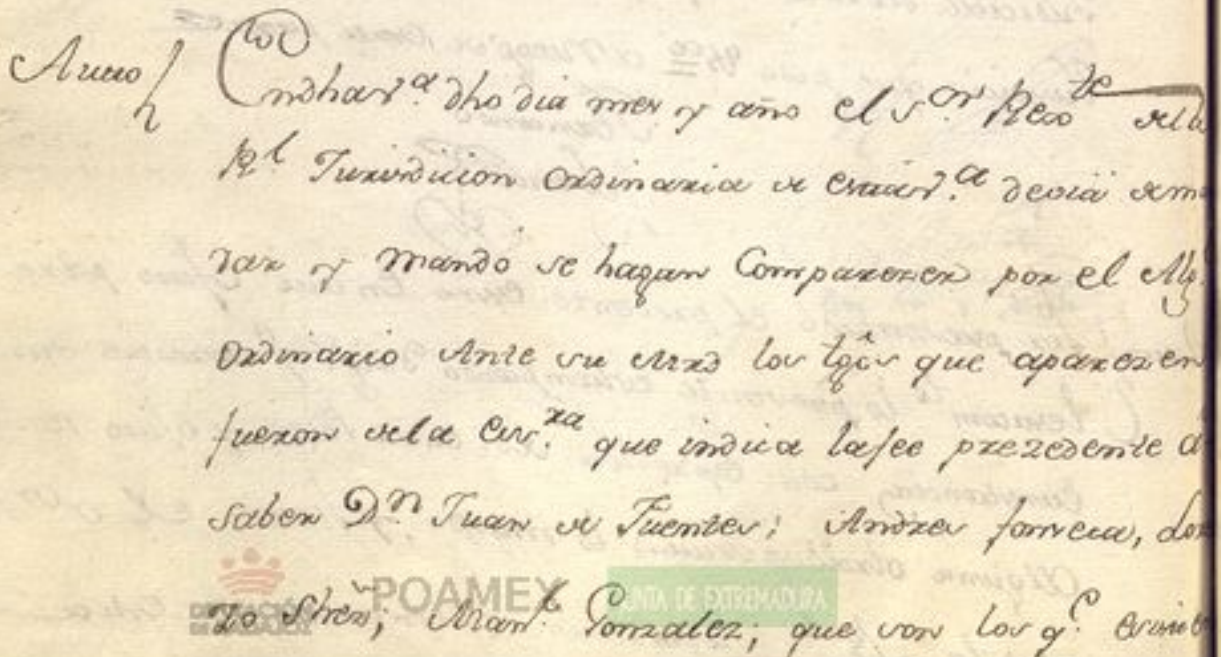 Auto
En dha v.ª dho dia mes y año el s.or Rexte de la
R.l Jurisdicion Ordinaria de esta v.ª devia de man
dar y mandó se hagan Comparezer por el Alg.l
Ordinario Ante su Mrd los tgôs que aparezen
fueron de la Esc.ra que indica la fee prezedente á
saber D.n Juan de Fuentes; Andres fonseca, Lore
zo Shez; Man.l Gonzalez; que son los q.e
DIPUTACIÓN DE BADAJOZ POAMEX JUNTA DE EXTREMADURA